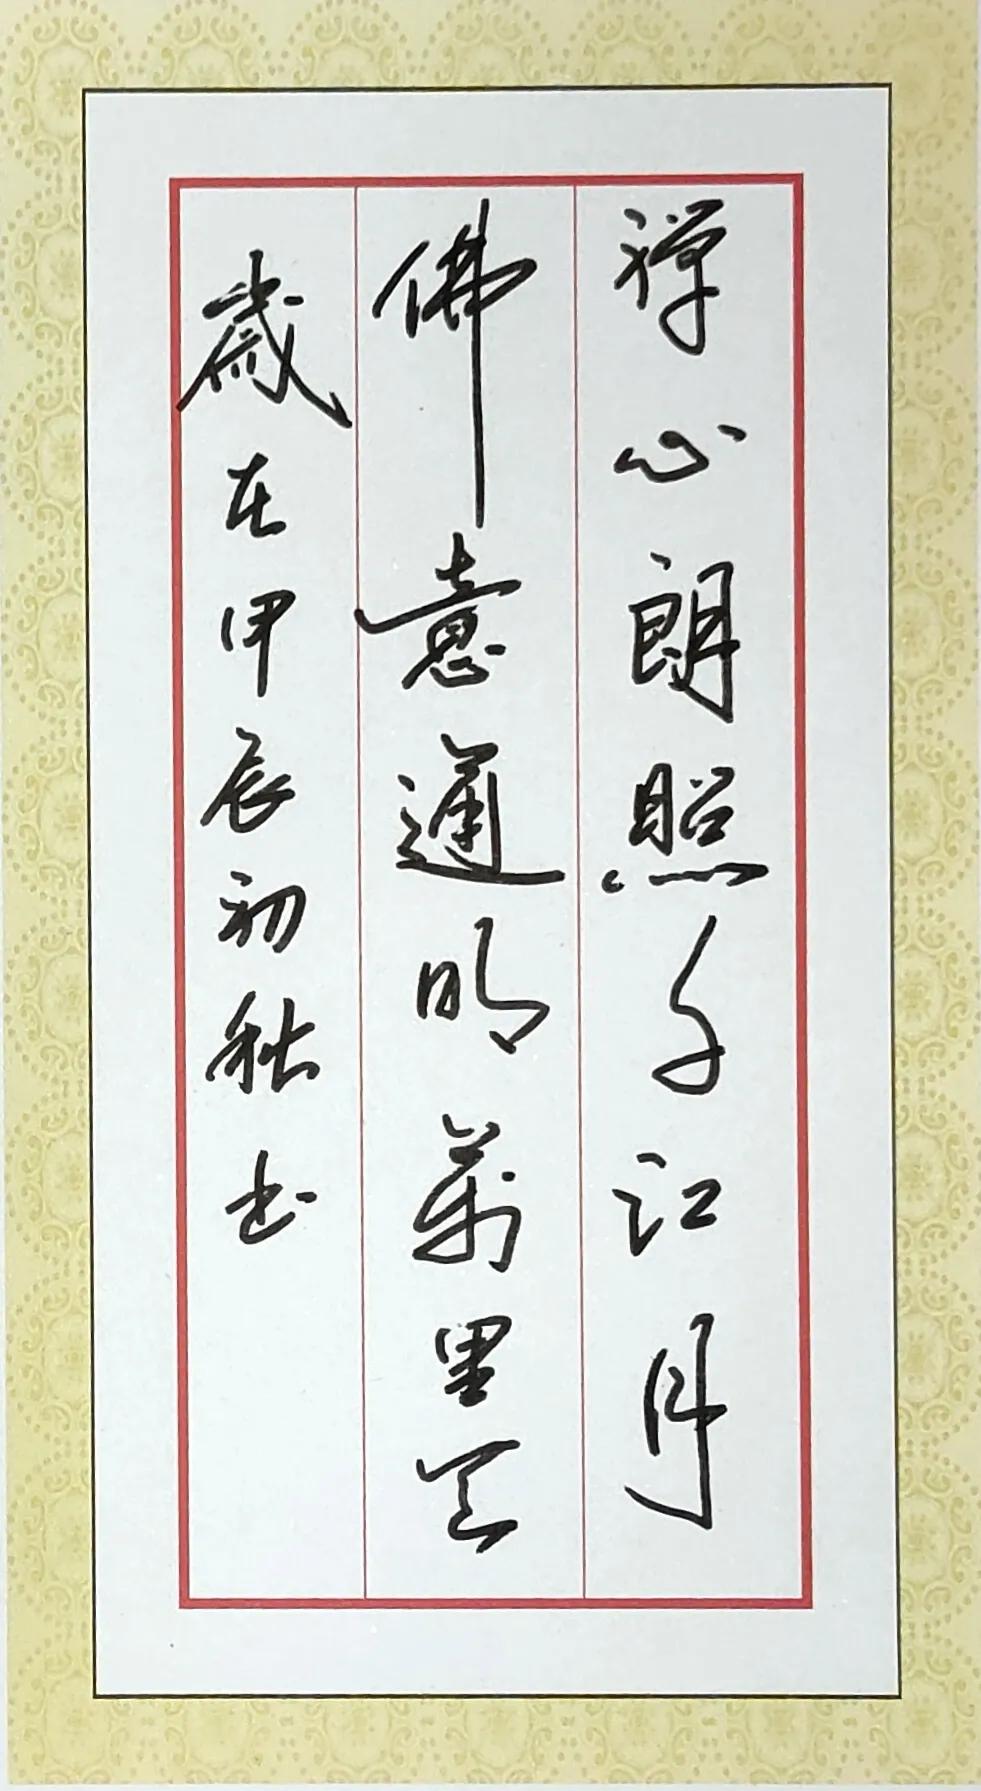 禅心朗照千江月
佛意通明萬里天
歲在甲辰初秋书